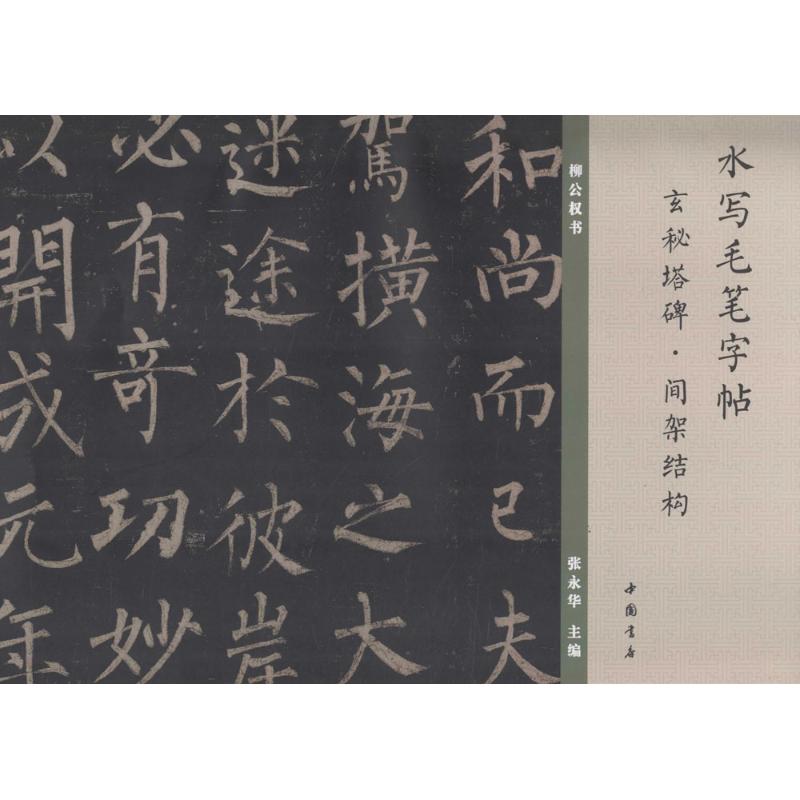 水写毛笔字帖
玄秘塔碑·间架结构
中国书店
柳公权书
张永华 主编
和尚而已夫
驾横海之大
迷途於彼岸
必有奇功妙
以開成元年